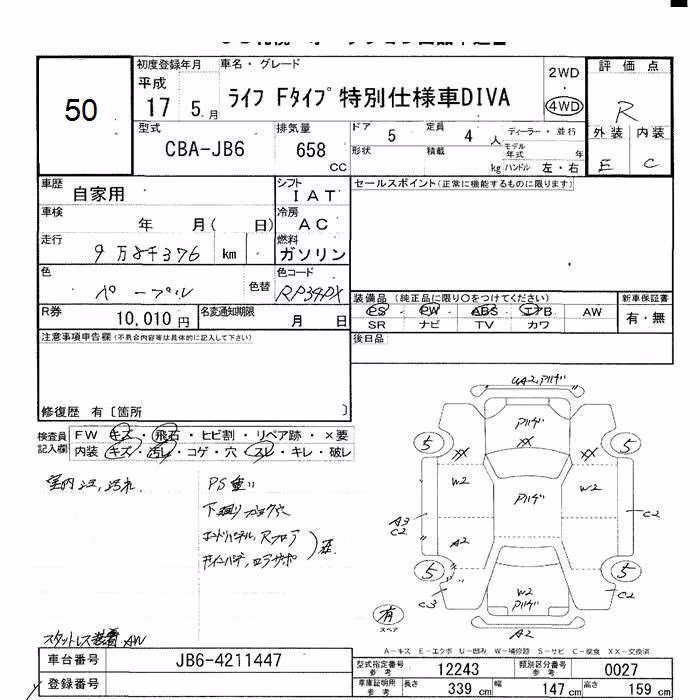 50
初度登録年月
平成
17 5.月
車名・グレード
ライフ Fタイプ 特別仕様車DIVA
2WD
4WD
評価点
R
外装 内装
E C
型式
CBA-JB6
排気量
658
CC
ドア
5
定員
4
人
ディーラー・並行
形状
積載
kg
モデル年式
年
ハンドル 左・右
車歴
自家用
シフト
IAT
セールスポイント(正常に機能するものに限ります)
車検
年 月( 日)
冷房
AC
走行
9万8千376 km
燃料
ガソリン
色
パープル
色替
色コード
RP34PX
装備品(純正品に限り○をつけてください)
新車保証書
PS PW ABS エアB AW
SR ナビ TV カワ
有・無
R券
10,010 円
名変通知期限
月 日
後日品
注意事項申告欄(不具合内容等は具体的に記入して下さい)
修復歴 有〔箇所 〕
検査員
記入欄
FW キズ・飛石・ヒビ割・リペア跡・×要
内装 キズ・汚レ・コゲ・穴・スレ・キレ・破レ
UA2, アリゲ
アリゲ
XX
5
5
XX
XX
W2
アリゲ
W2
A3
C2
C2
A2
5
5
C3
C2
W2
アリゲ
A2
有
スペア
PS重い
スタットレス装着 AW
A-キズ E-エクボ U-凹み W-補修跡 S-サビ C-腐食 XX-交換済
車台番号
JB6-4211447
登録番号
型式指定番号
参考
12243
類別区分番号
参考
0027
車庫証明用
参考
長さ
339 cm
幅
147 cm
高さ
159 cm